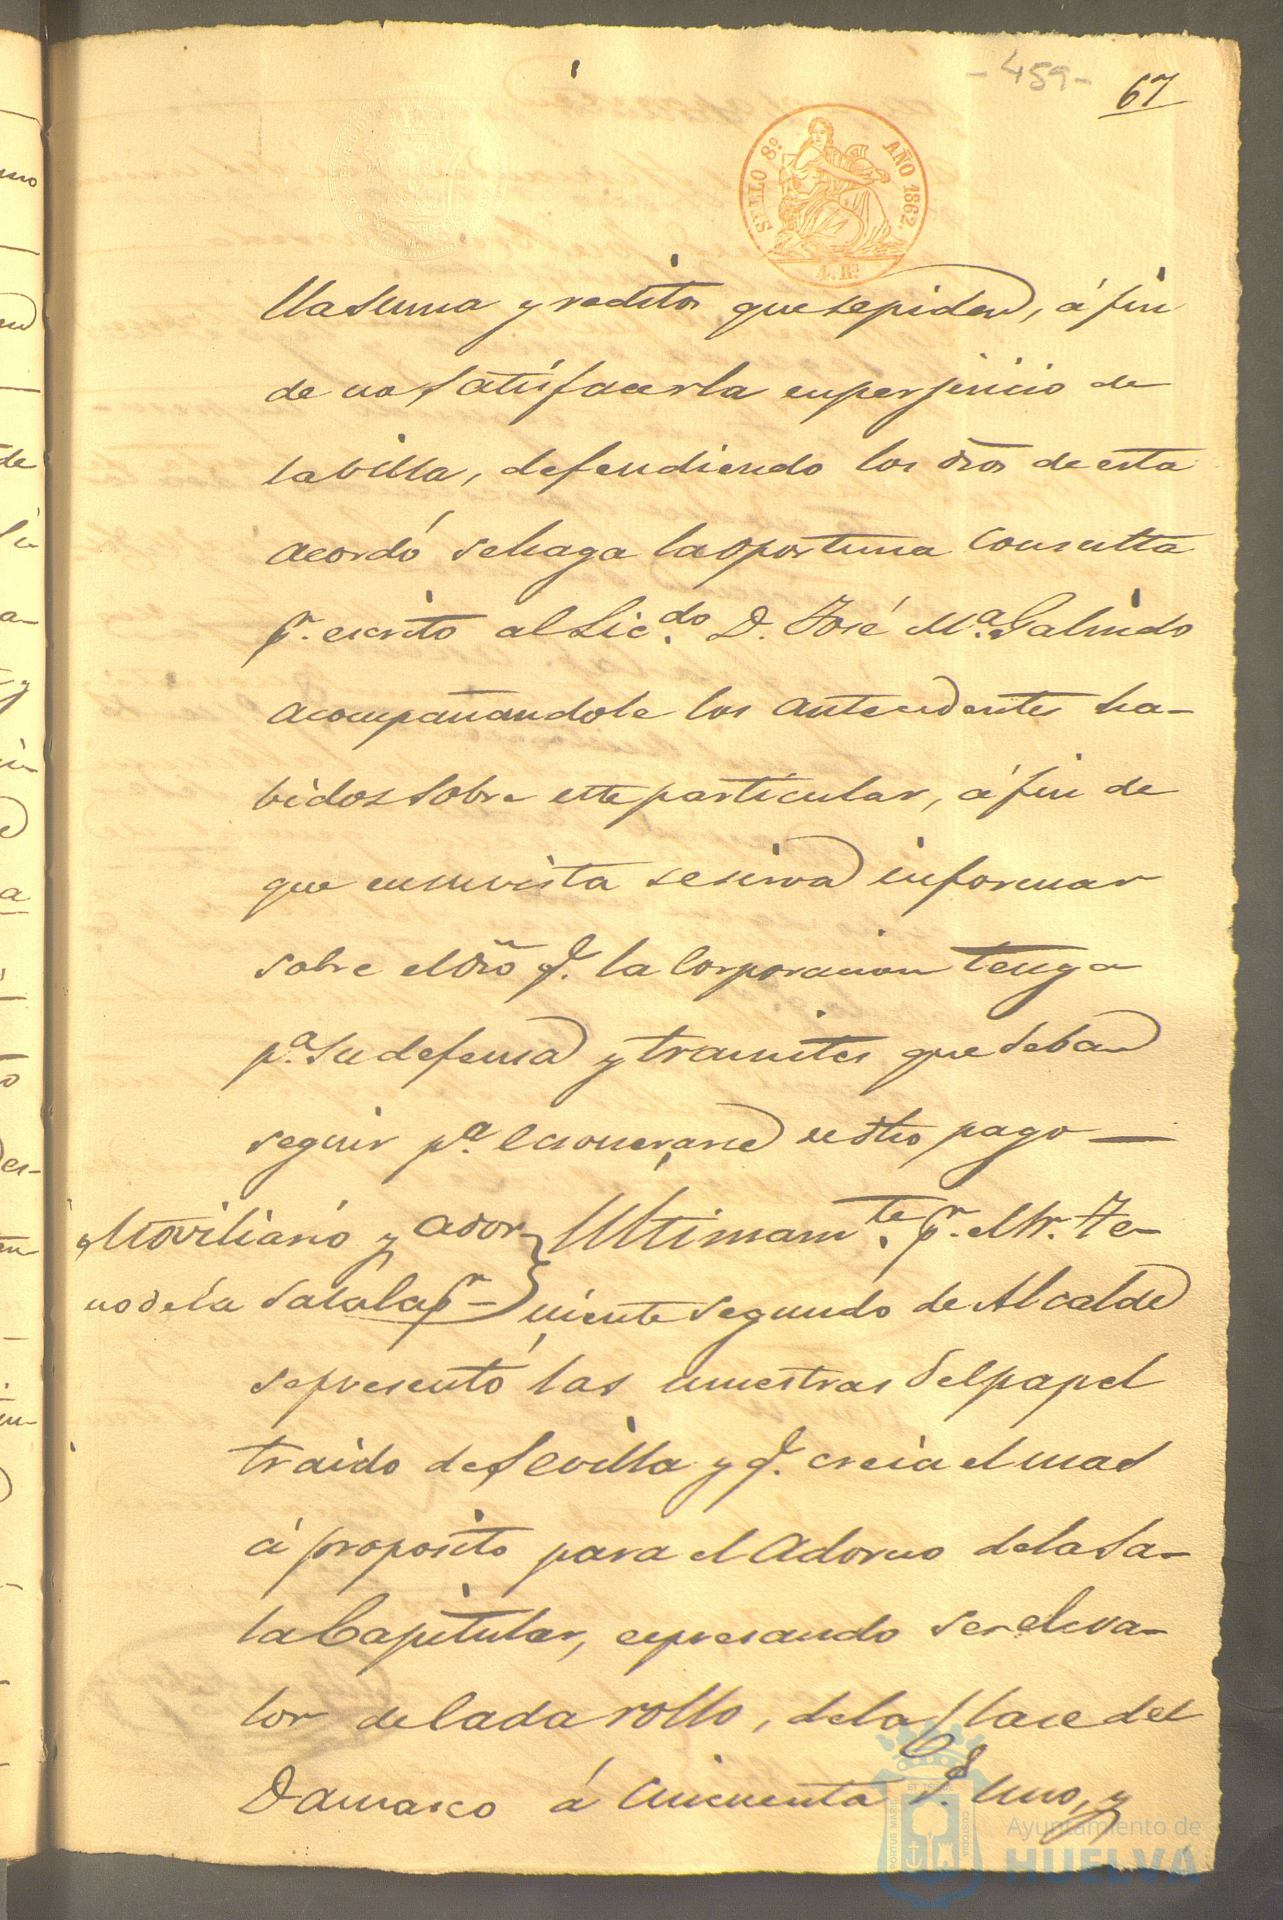 -459-
67
SELLO 8º AÑO 1862.
4. Rs
lla suma y reditos que se piden, á fin
de no satisfacerla en perjuicio de
la villa, defendiendo los dros de esta
acordó se haga la oportuna consulta
pr. escrito al Lic.do D. José Mª Galindo
acompañandole los antecedentes ha-
bidos sobre este particular, á fin de
que en su vista se sirva informar
sobre el dro q.e la Corporacion tenga
pª su defensa y tramites que deba
seguir pª exonerarse de dho pago —
Moviliario y ador-
no de la Sala Capr-
Ultimam.te pr. el Sr. Te-
niente segundo de Alcalde
se presentó las muestras del papel
traido de Sevilla y q.e creia el mas
á proposito para el adorno de la Sa-
la Capitular, expresando ser el va-
lor de cada rollo, de la clase del
Damasco á cincuenta rs. uno, y
Ayuntamiento de
HUELVA